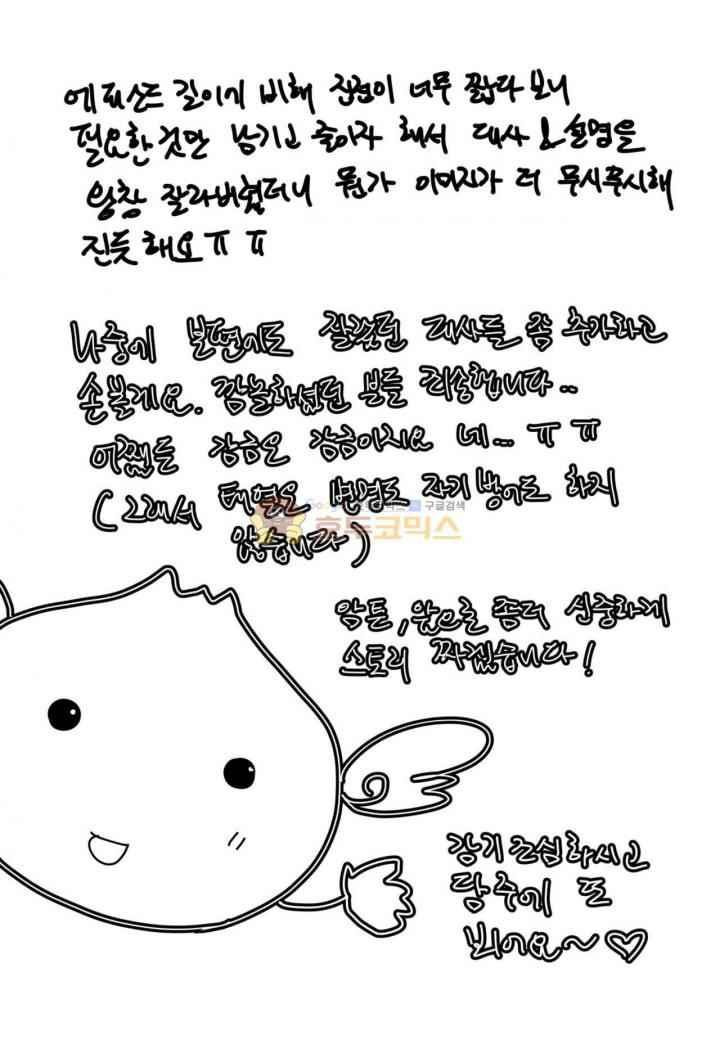 에피소드 길이에 비해 진전이 너무 짧다 보니
필요한 것만 남기고 줄이자 해서 대사 & 설명을
왕창 잘라버렸더니 뭔가 이미지가 더 무시무시해
진듯해요 ㅠㅠ
나중에 잘랐던 대사들 좀 추가하고
손볼게요. 깜놀하셨던 분들 죄송합니다..
어쨌든 감금은 감금이지요 네... ㅠㅠ
(그래서 변명도 자기방어도 하지
않습니다)
암튼, 앞으로 좀더 신중하게
스토리 짜겠습니다!
구글검색
호두코믹스
감기 조심하시고
담주에 또
뵈어요~♡